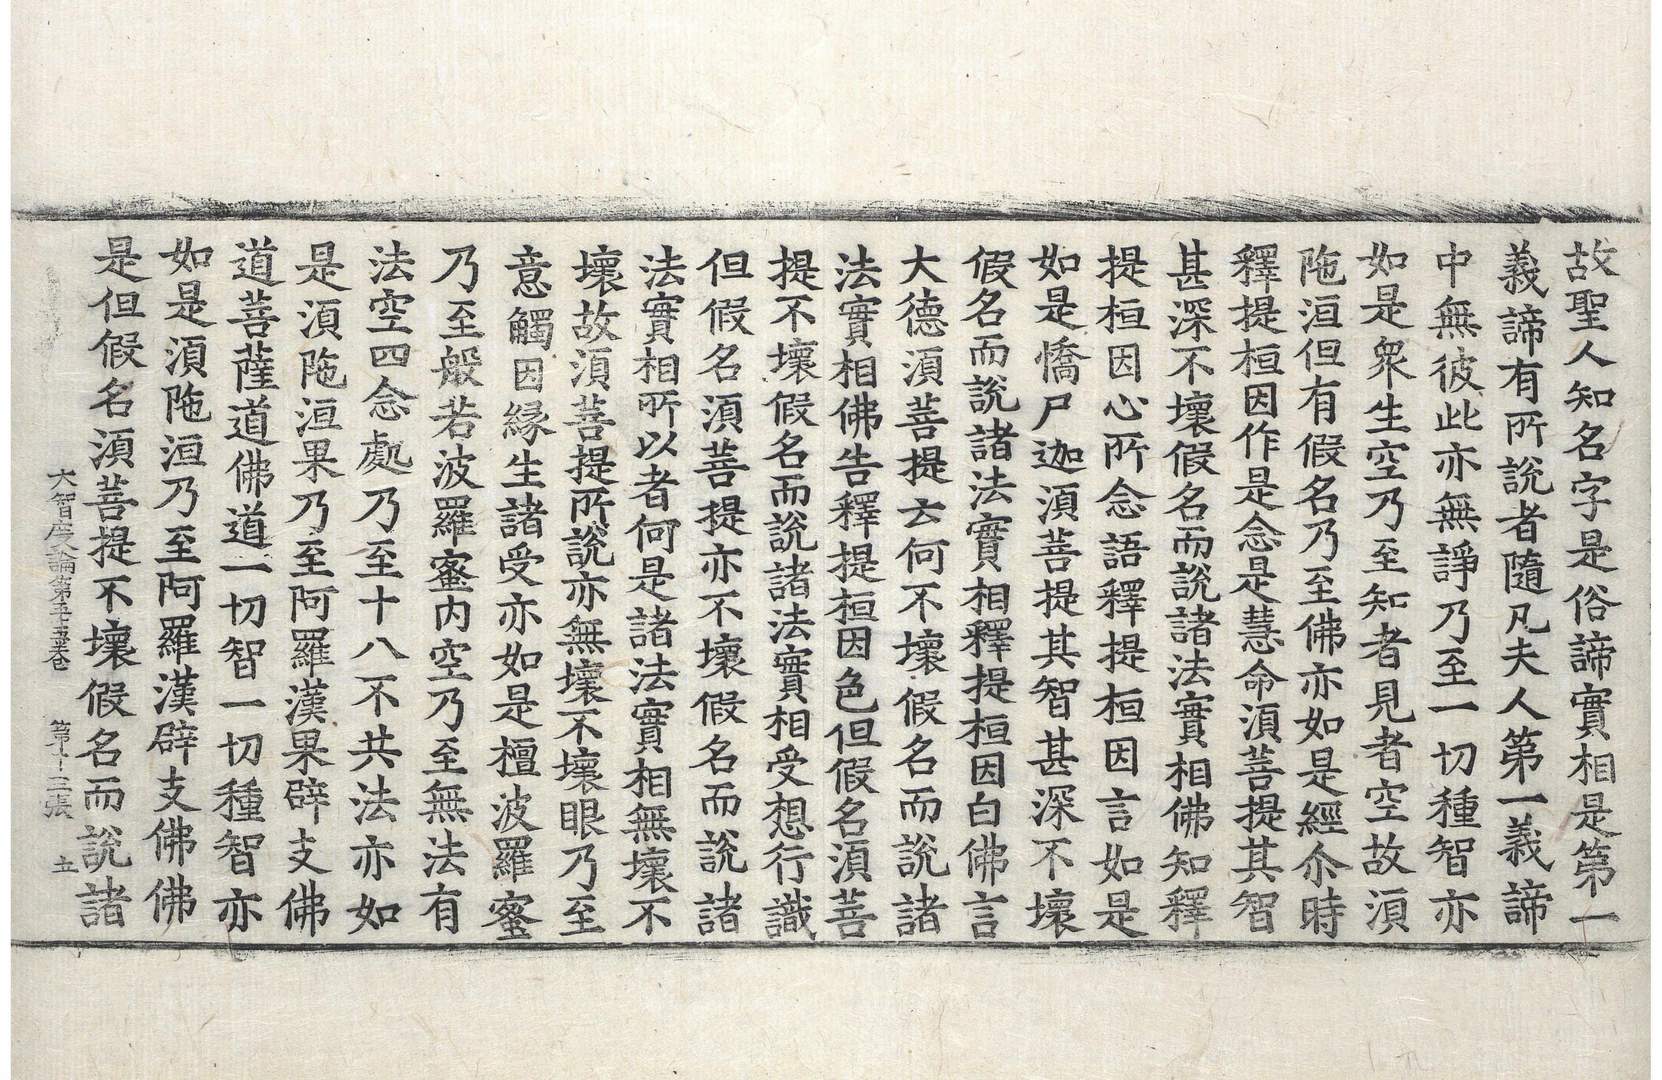 故聖人知名字是俗諦實相是第一
義諦有所說者隨凡夫人第一義諦
中無彼此亦無諍乃至一切種智亦
如是衆生空乃至知者見者空故湏
陁洹但有假名乃至佛亦如是經尒時
釋提桓因作是念是慧命湏菩提其智
甚深不壞假名而說諸法實相佛知釋
提桓因心所念語釋提桓因言如是
如是憍尸迦湏菩提其智甚深不壞
假名而說諸法實相釋提桓因白佛言
大德湏菩提云何不壞假名而說諸
法實相佛告釋提桓因色但假名湏菩
提不壞假名而說諸法實相受想行識
但假名湏菩提亦不壞假名而說諸
法實相所以者何是諸法實相無壞不
壞故湏菩提所說亦無壞不壞眼乃至
意觸因緣生諸受亦如是檀波羅蜜
乃至般若波羅蜜內空乃至無法有
法空四念處乃至十八不共法亦如
是湏陁洹果乃至阿羅漢果辟支佛
道菩薩道佛道一切智一切種智亦
如是湏陁洹乃至阿羅漢辟支佛佛
是但假名湏菩提不壞假名而說諸
大智度論第五十五卷 第十三張